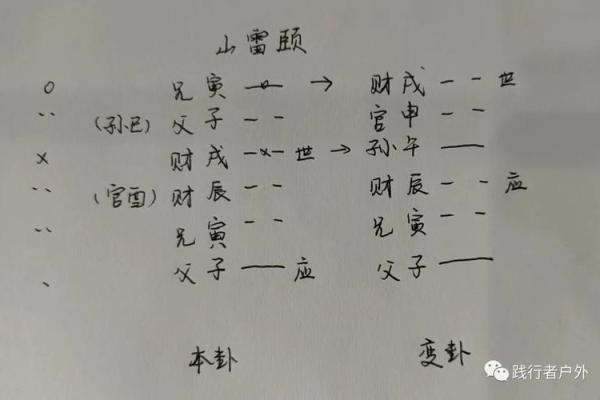 山雷颐
兄寅 → 财戌 世
(孙巳) 父子 官申
x 财戌 世 → 孙午
(官酉) 财辰 财辰 应
兄寅 兄寅
父子 应 父子
本卦 变卦
践行者户外